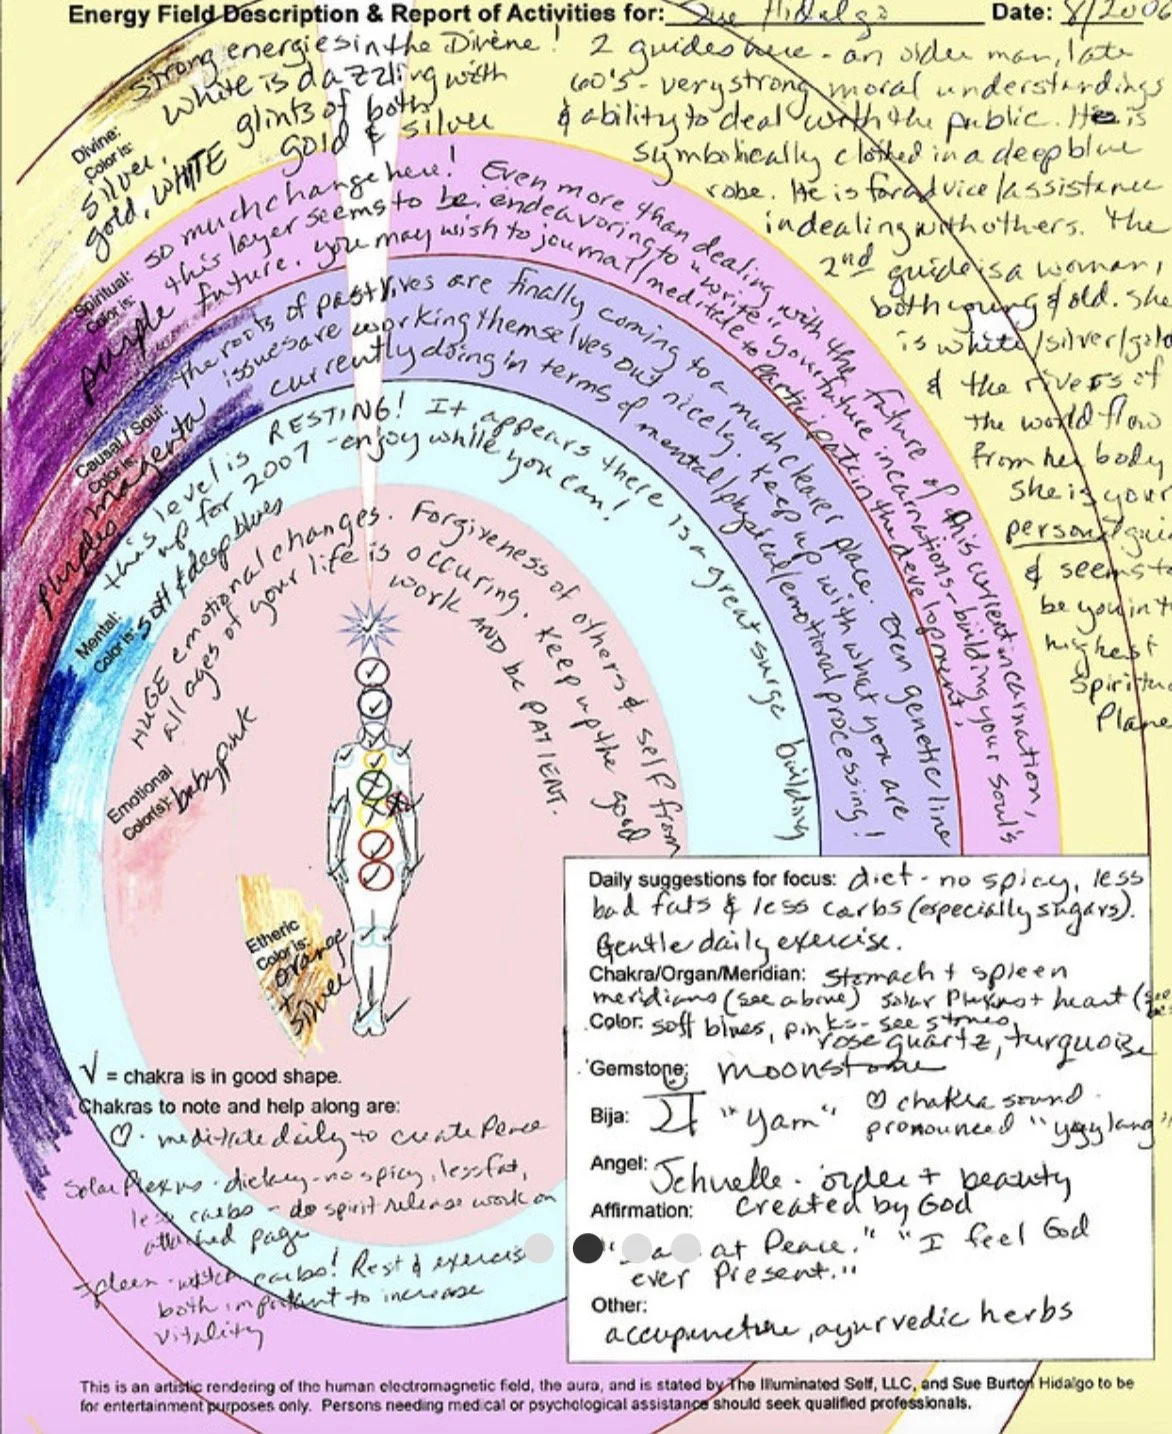 Energy Field Description & Report of Activities for: Sue Hidalgo Date: 8/2006
Divine:
Color is:
silver,
gold, WHITE
strong energies in the Divine!
White is dazzling with
glints of both
gold & silver
2 guides here - an older man, late
60's - very strong moral understandings
& ability to deal with the public. He is
symbolically clothed in a deep blue
robe. He is for advice/assistance
in dealing with others. The
2nd guide is a woman,
both young & old. She
is white/silver/gold
& the rivers of
the world flow
from her body
She is your
personal
& seems to
be you in
highest
Spiritual
Plane
Spiritual:
Color is:
purple
so much change here! Even more than dealing with the future of this current incarnation,
this layer seems to be endeavoring to "write" your future incarnations - building your soul's
future. you may wish to journal/meditate to participate in the development.
Causal / Soul:
Color is:
magenta
purples
The roots of past lives are finally coming to a much clearer place. Even genetic line
issues are working themselves out nicely. Keep up with what you are
currently doing in terms of mental/physical/emotional processing!
Mental:
Color is:
soft & deep blues
this level is RESTING! It appears there is a great surge building
up for 2007 - enjoy while you can!
Emotional
Color(s):
baby pink
HUGE emotional changes. Forgiveness of others & self from
all ages of your life is occuring. Keep up the good
work AND be PATIENT.
Etheric
Color is:
orange
+
silver
√ = chakra is in good shape.
Chakras to note and help along are:
♡ - meditate daily to create Peace
Solar Plexus - dietary - no spicy, less fat,
less carbs - do spirit release work on
attached page
Spleen - watch carbs! Rest & exercise
both important to increase
vitality
Daily suggestions for focus: diet - no spicy, less
bad fats & less carbs (especially sugars).
Gentle daily exercise.
Chakra/Organ/Meridian: Stomach + spleen
meridians (see above) solar Plexus + heart (see
Color: soft blues, pinks - see stones
rose quartz, turquoise
Gemstone: moonstone
Bija: "Yam" ♡ chakra sound
pronounced
Angel: Jehuelle - order + beauty
created by God
Affirmation:
at Peace." "I feel God
ever Present."
Other:
accupuncture, ayurvedic herbs
This is an artistic rendering of the human electromagnetic field, the aura, and is stated by The Illuminated Self, LLC, and Sue Burton Hidalgo to be
for entertainment purposes only. Persons needing medical or psychological assistance should seek qualified professionals.